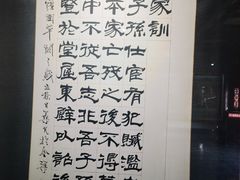 家訓
子孫仕宦有犯贓濫
本家亡歿之後不得
中不從吾志非吾子
豎於堂屋東壁以詔